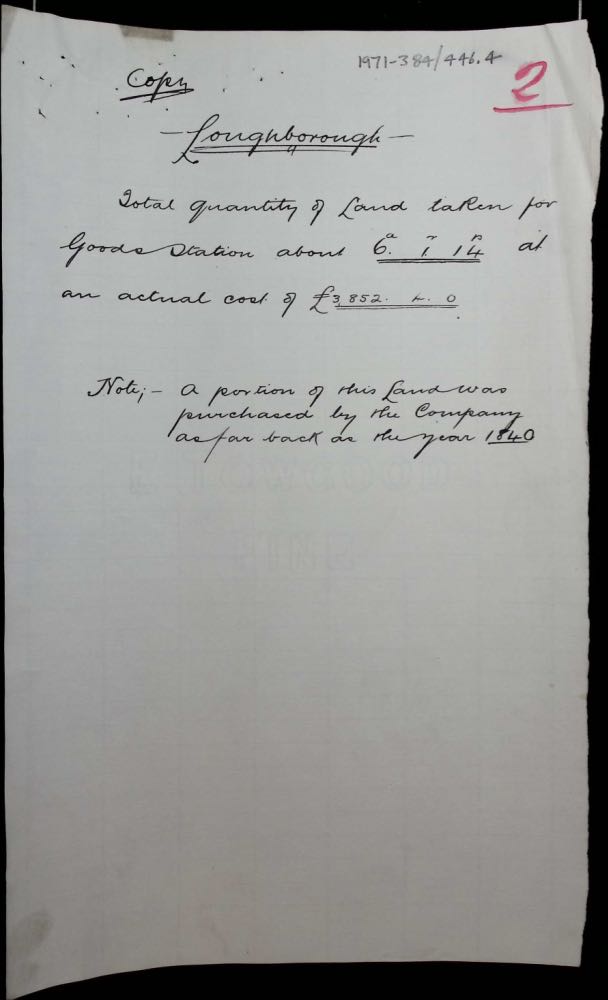 1971-384/446.4
2
Copy
- Loughborough -
Total quantity of Land taken for
Goods Station about 6.ᵃ 1.ʳ 14ᵖ at
an actual cost of £3,852. 4. 0
Note; - A portion of this Land was
purchased by the Company
as far back as the year 1840